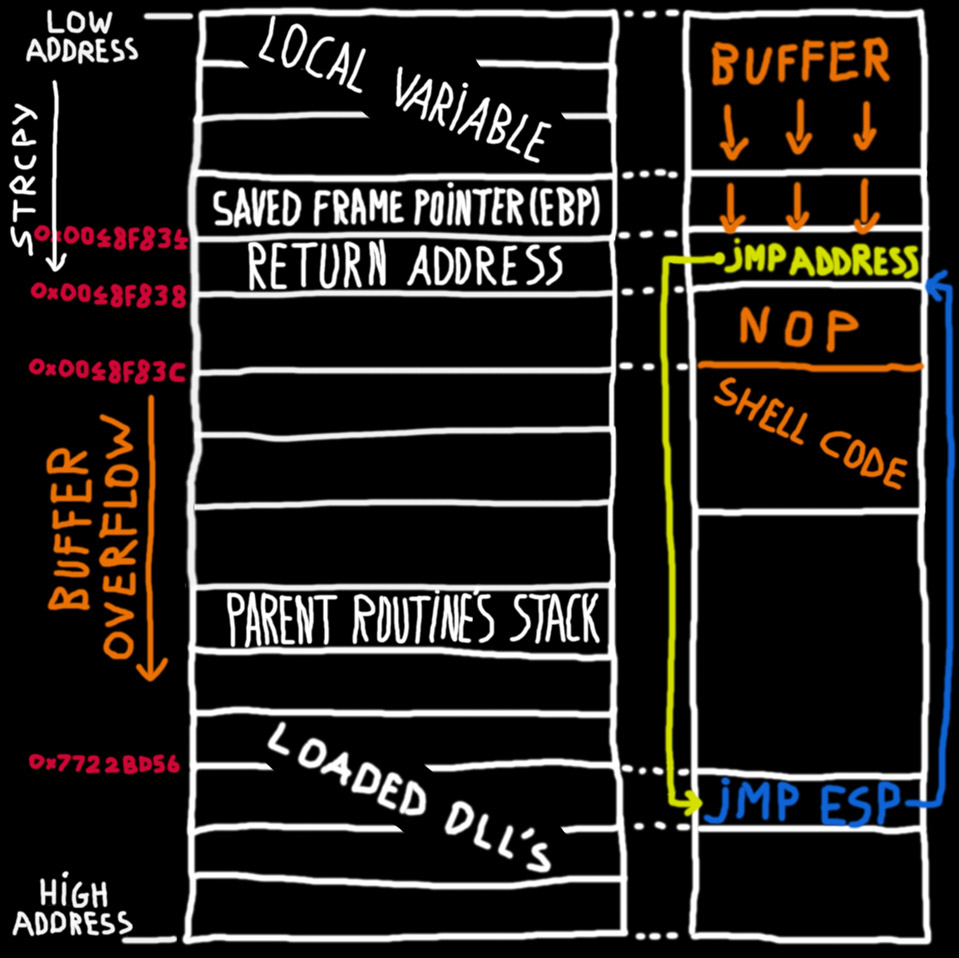 LOW
ADDRESS
STRCPY
0x0048F834
0x0048F838
0x0048F83C
BUFFER
OVERFLOW
0x7722BD56
HiGH
ADDRESS
LOCAL VARiABLE
SAVED FRAME POiNTER(EBP)
RETURN ADDRESS
PARENT ROUTiNE'S STACK
LOADED DLL'S
BUFFER
jMP ADDRESS
NOP
SHELL CODE
jMP ESP